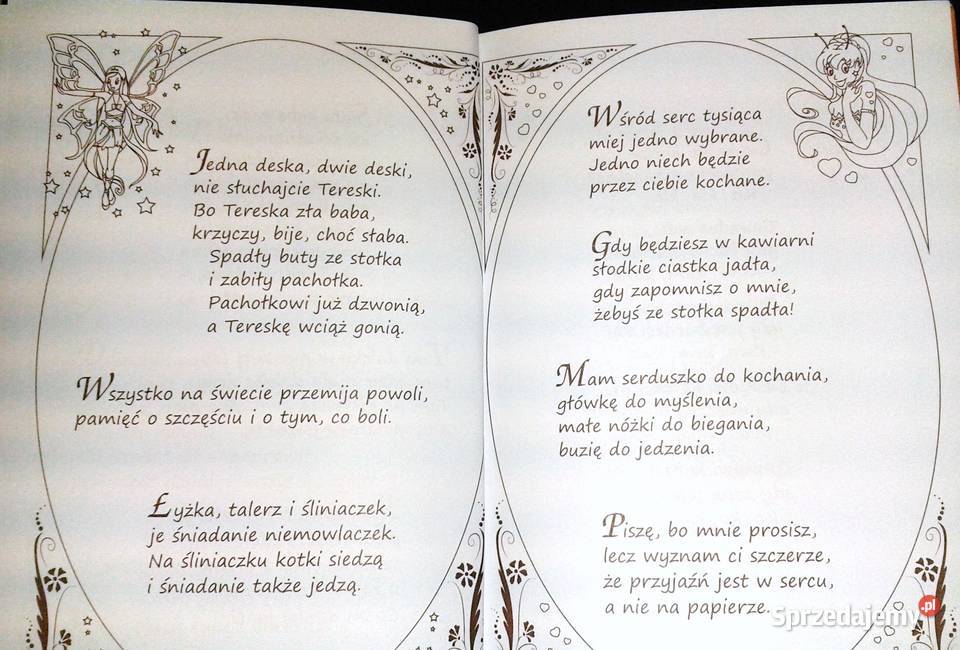 Jedna deska, dwie deski,
nie słuchajcie Tereski.
Bo Tereska zła baba,
krzyczy, bije, choć słaba.
Spadły buty ze stołka
i zabiły pachołka.
Pachołkowi już dzwonią,
a Tereskę wciąż gonią.
Wszystko na świecie przemija powoli,
pamięć o szczęściu i o tym, co boli.
Łyżka, talerz i śliniaczek,
je śniadanie niemowlaczek.
Na śliniaczku kotki siedzą
i śniadanie także jedzą.
Wśród serc tysiąca
miej jedno wybrane.
Jedno niech będzie
przez ciebie kochane.
Gdy będziesz w kawiarni
słodkie ciastka jadła,
gdy zapomnisz o mnie,
żebyś ze stołka spadła!
Mam serduszko do kochania,
główkę do myślenia,
małe nóżki do biegania,
buzię do jedzenia.
Piszę, bo mnie prosisz,
lecz wyznam ci szczerze,
że przyjaźń jest w sercu,
a nie na papierze.
Sprzedajemy.pl